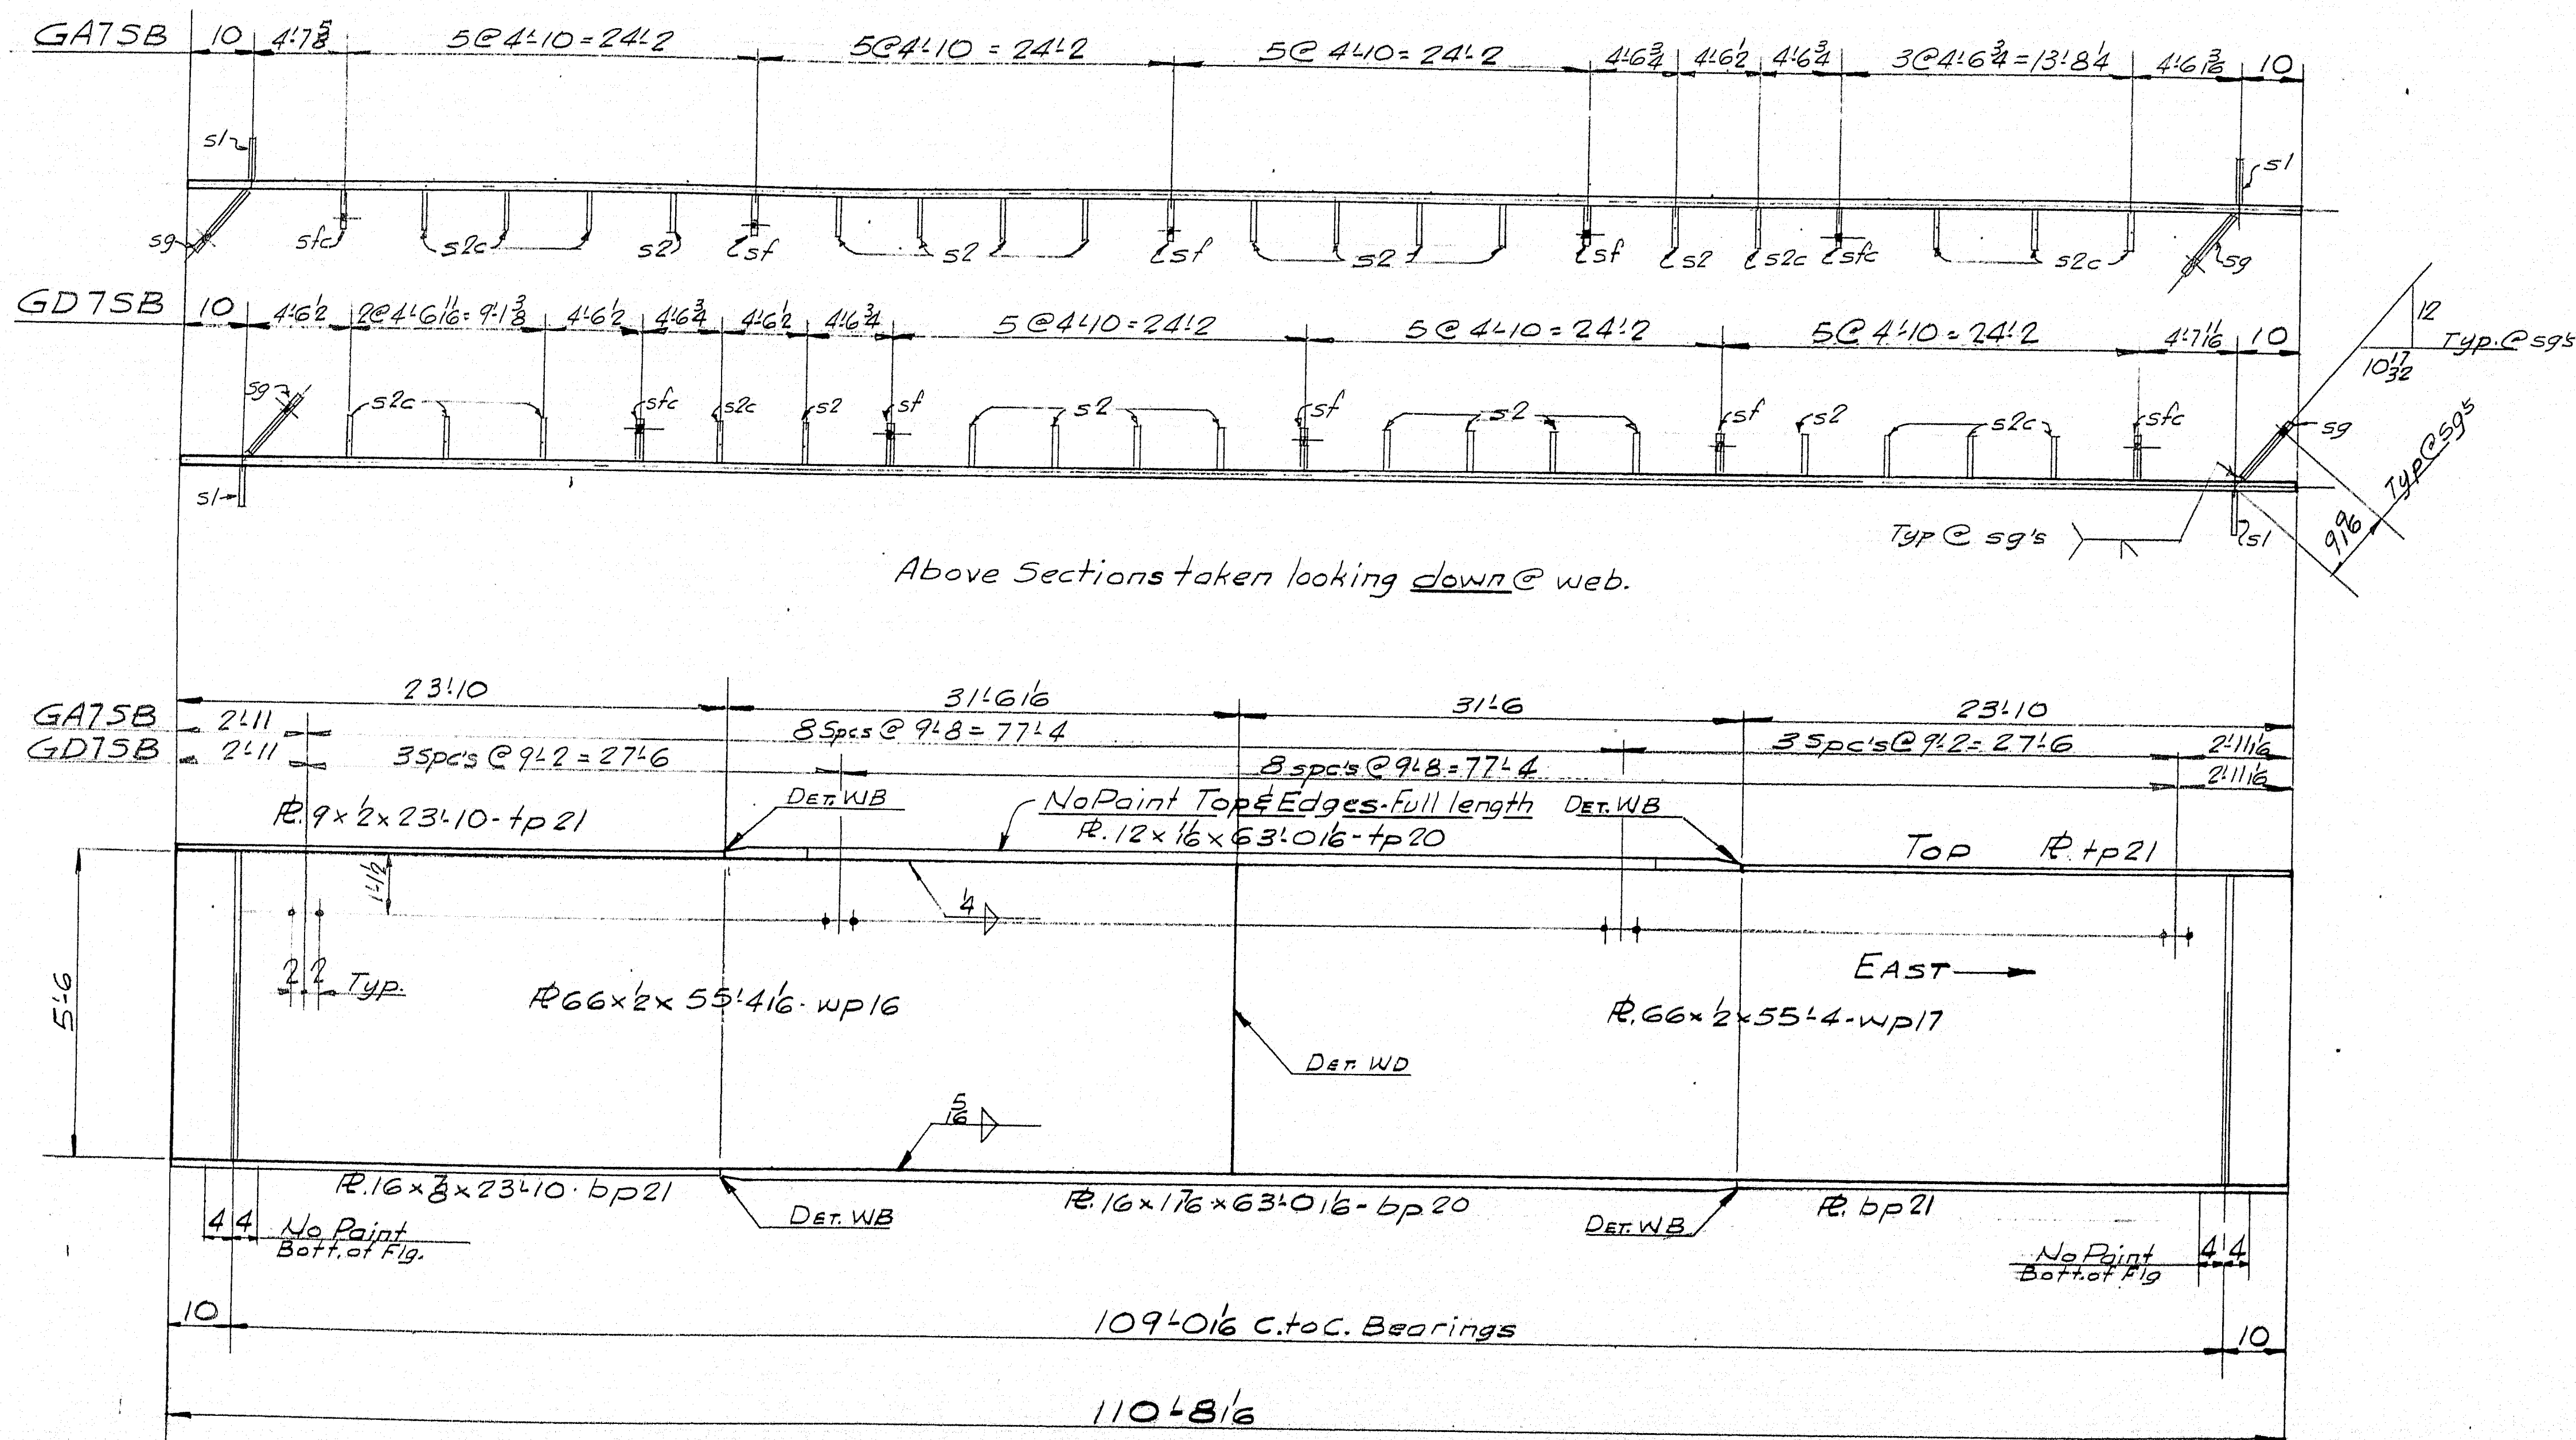 GA7SB 10 4'-7 5/8 5@4'-10=24'-2 5@4'-10=24'-2 5@4'-10=24'-2 4'-6 3/4 4'-6 1/2 4'-6 3/4 3@4'-6 3/4=13'-8 1/4 4'-6 3/16 10
s1 s1
sg sfc s2c s2 sf s2 sf s2 sf s2 s2c sfc s2c sg
GD7SB 10 4'-6 1/2 2@4'-6 11/16=9'-1 3/8 4'-6 1/2 4'-6 3/4 4'-6 1/2 4'-6 3/4 5@4'-10=24'-2 5@4'-10=24'-2 5@4'-10=24'-2 4'-7 11/16 10
12
10 17/32
Typ.@sg's
sg s2c sfc s2c s2 sf s2 sf s2 sf s2 s2c sfc sg
Typ@sg's
s1
Typ@sg's
s1
9 9/16
Above Sections taken looking down @ web.
23'-10 31'-6 1/16 31'-6 23'-10
GA7SB 2'-11 8 Spcs @ 9'-8=77'-4 3 Spc's@9'-2=27'-6 2'-11 1/16
GD7SB 2'-11 3 Spc's@9'-2=27'-6 8 spc's@9'-8=77'-4 2'-11 1/16
DET. WB No Paint Top & Edges-Full length DET. WB
PL.9×1/2×23'-10-tp21 PL.12×1/16×63'-0 1/16-tp20
Top PL.tp21
1'-1/2
1/4
2 2 Typ.
EAST
5'-6
PL66×1/2×55'-4 1/16-wp16 PL.66×1/2×55'-4-wp17
DET. WD
5/16
PL.16×7/8×23'-10-bp21 PL.16×1 1/16×63'-0 1/16-bp20 PL.bp21
DET. WB DET. WB
4 4 No Paint
Bott.of Flg.
No Paint 4 4
Bott.of Flg
10 109'-0 1/16 C.toC. Bearings 10
110'-8 1/16